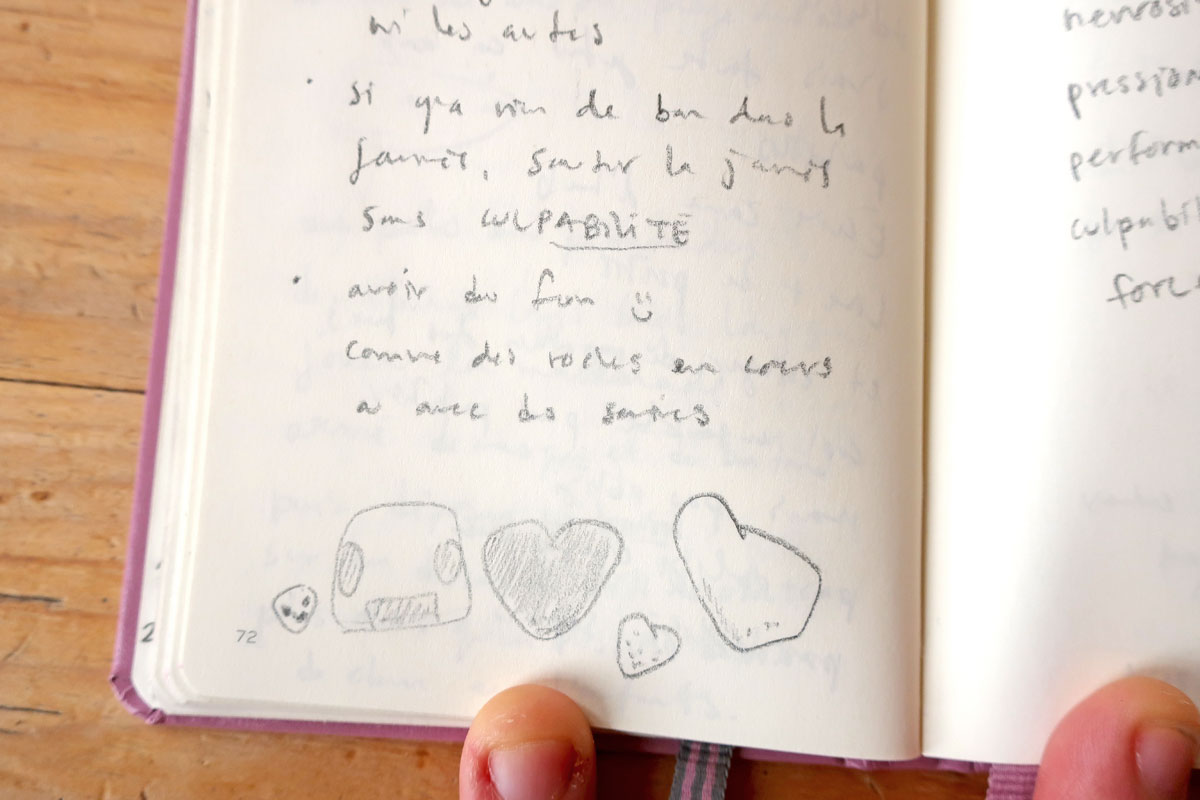 ni les autres
• si ya rien de bon dans la
journée, sauter la journée
sans CULPABILITÉ
• avoir du fun
comme des roches en coeurs
avec des
72
2
nervosi
pression
perform
culpabil
force